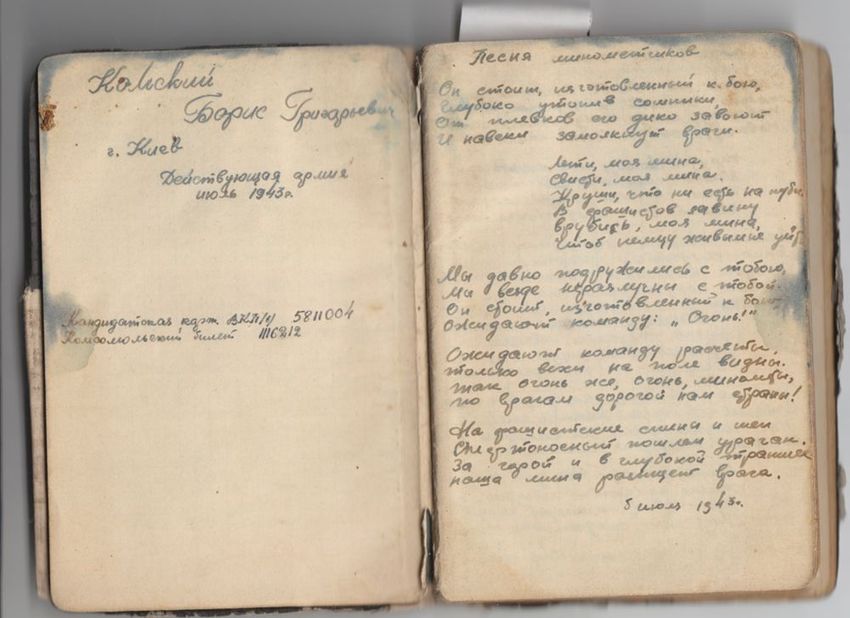 Камский
Борис Григорьевич
г. Киев
Действующая армия
июль 1943г.
Кандидатская карт. ВКП(б) 5811004
Комсомольский билет 1116212
Песня минометчиков
Он стоит, изготовленный к бою,
Глубоко утопив сошники,
От плевков его дико завоют
И навеки замолкнут враги.
Лети, моя мина,
Свисти, моя мина.
Круши, что ни есть на пути.
В фашистов лавину
врубись, моя мина,
Чтоб немцу живым не уйти
Мы давно подружились с тобою,
Мы везде неразлучны с тобой.
Он стоит, изготовленный к бою,
Ожидают команду: „Огонь!"
Ожидают команду расчеты,
только вехи на поле видны.
так огонь же, огонь, минометы,
по врагам дорогой нам страны!
На фашистские спины и шеи
Смертоносный пошлем ураган.
За горой и в глубокой траншее
наша мина врага.
5 июля 1943г.